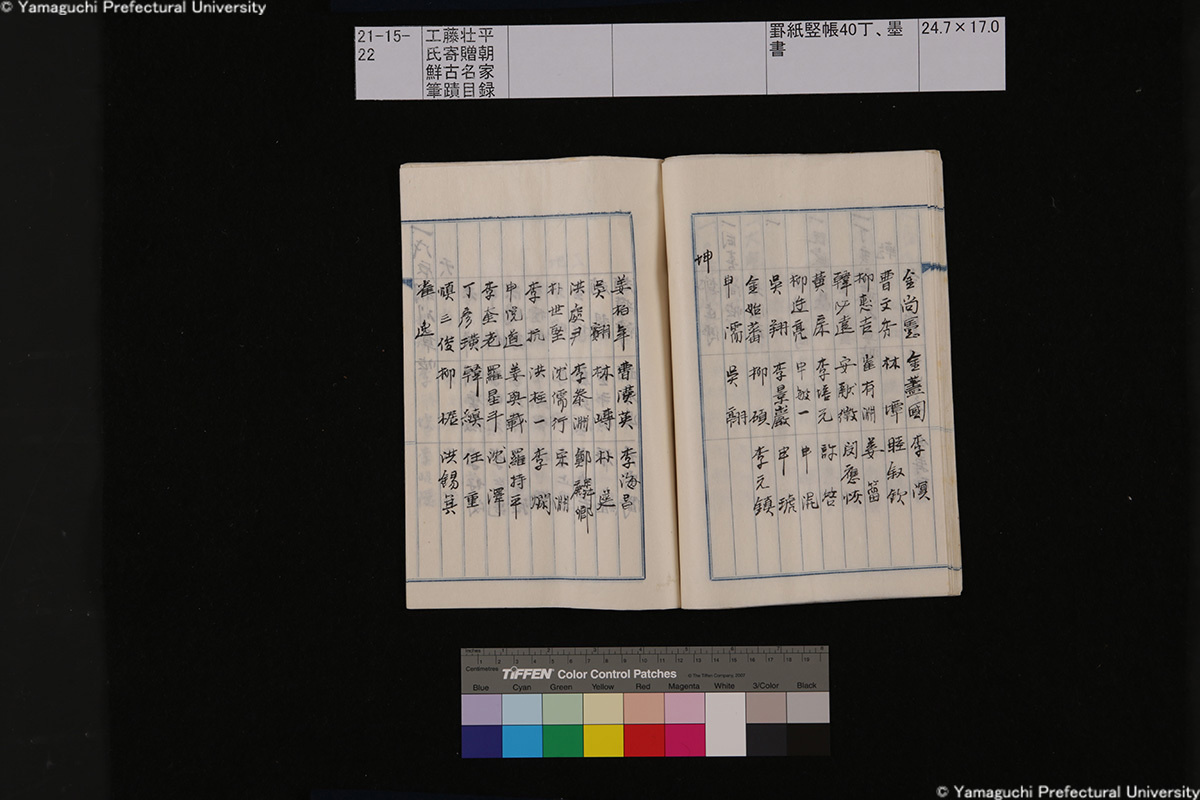 © Yamaguchi Prefectural University
21-15-22
工藤壮平氏寄贈朝鮮古名家筆蹟目録
罫紙竪帳40丁、墨書
24.7×17.0
金尚憲 金藎國 李溟
曹文秀 林㙔 睦叙欽
柳忠吉 崔有淵 姜籀
韓必遠 安献徴 閔應恢
黄床 李培元 許啓
柳廷亮 申敏一 申混
吳翔 李景嚴 申琥
金始蕃 柳碩 李元鎮
申濡 吳翽
坤
姜栢年 曹漢英 李海昌
吳翿 林 朴筵
洪處尹 李泰淵 鄭麟卿
朴世堅 沈儒行 宋淵
李抗 洪柱一 李
申悦道 姜與載 羅持平
李奎老 羅星斗 沈澤
丁彦璜 韓縝 任重
慎三俊 柳椐 洪錫箕
崔逸
Inches
Centimetres
TIFFEN Color Control Patches
© The Tiffen Company, 2007
Blue Cyan Green Yellow Red Magenta White 3/Color Black
© Yamaguchi Prefectural University